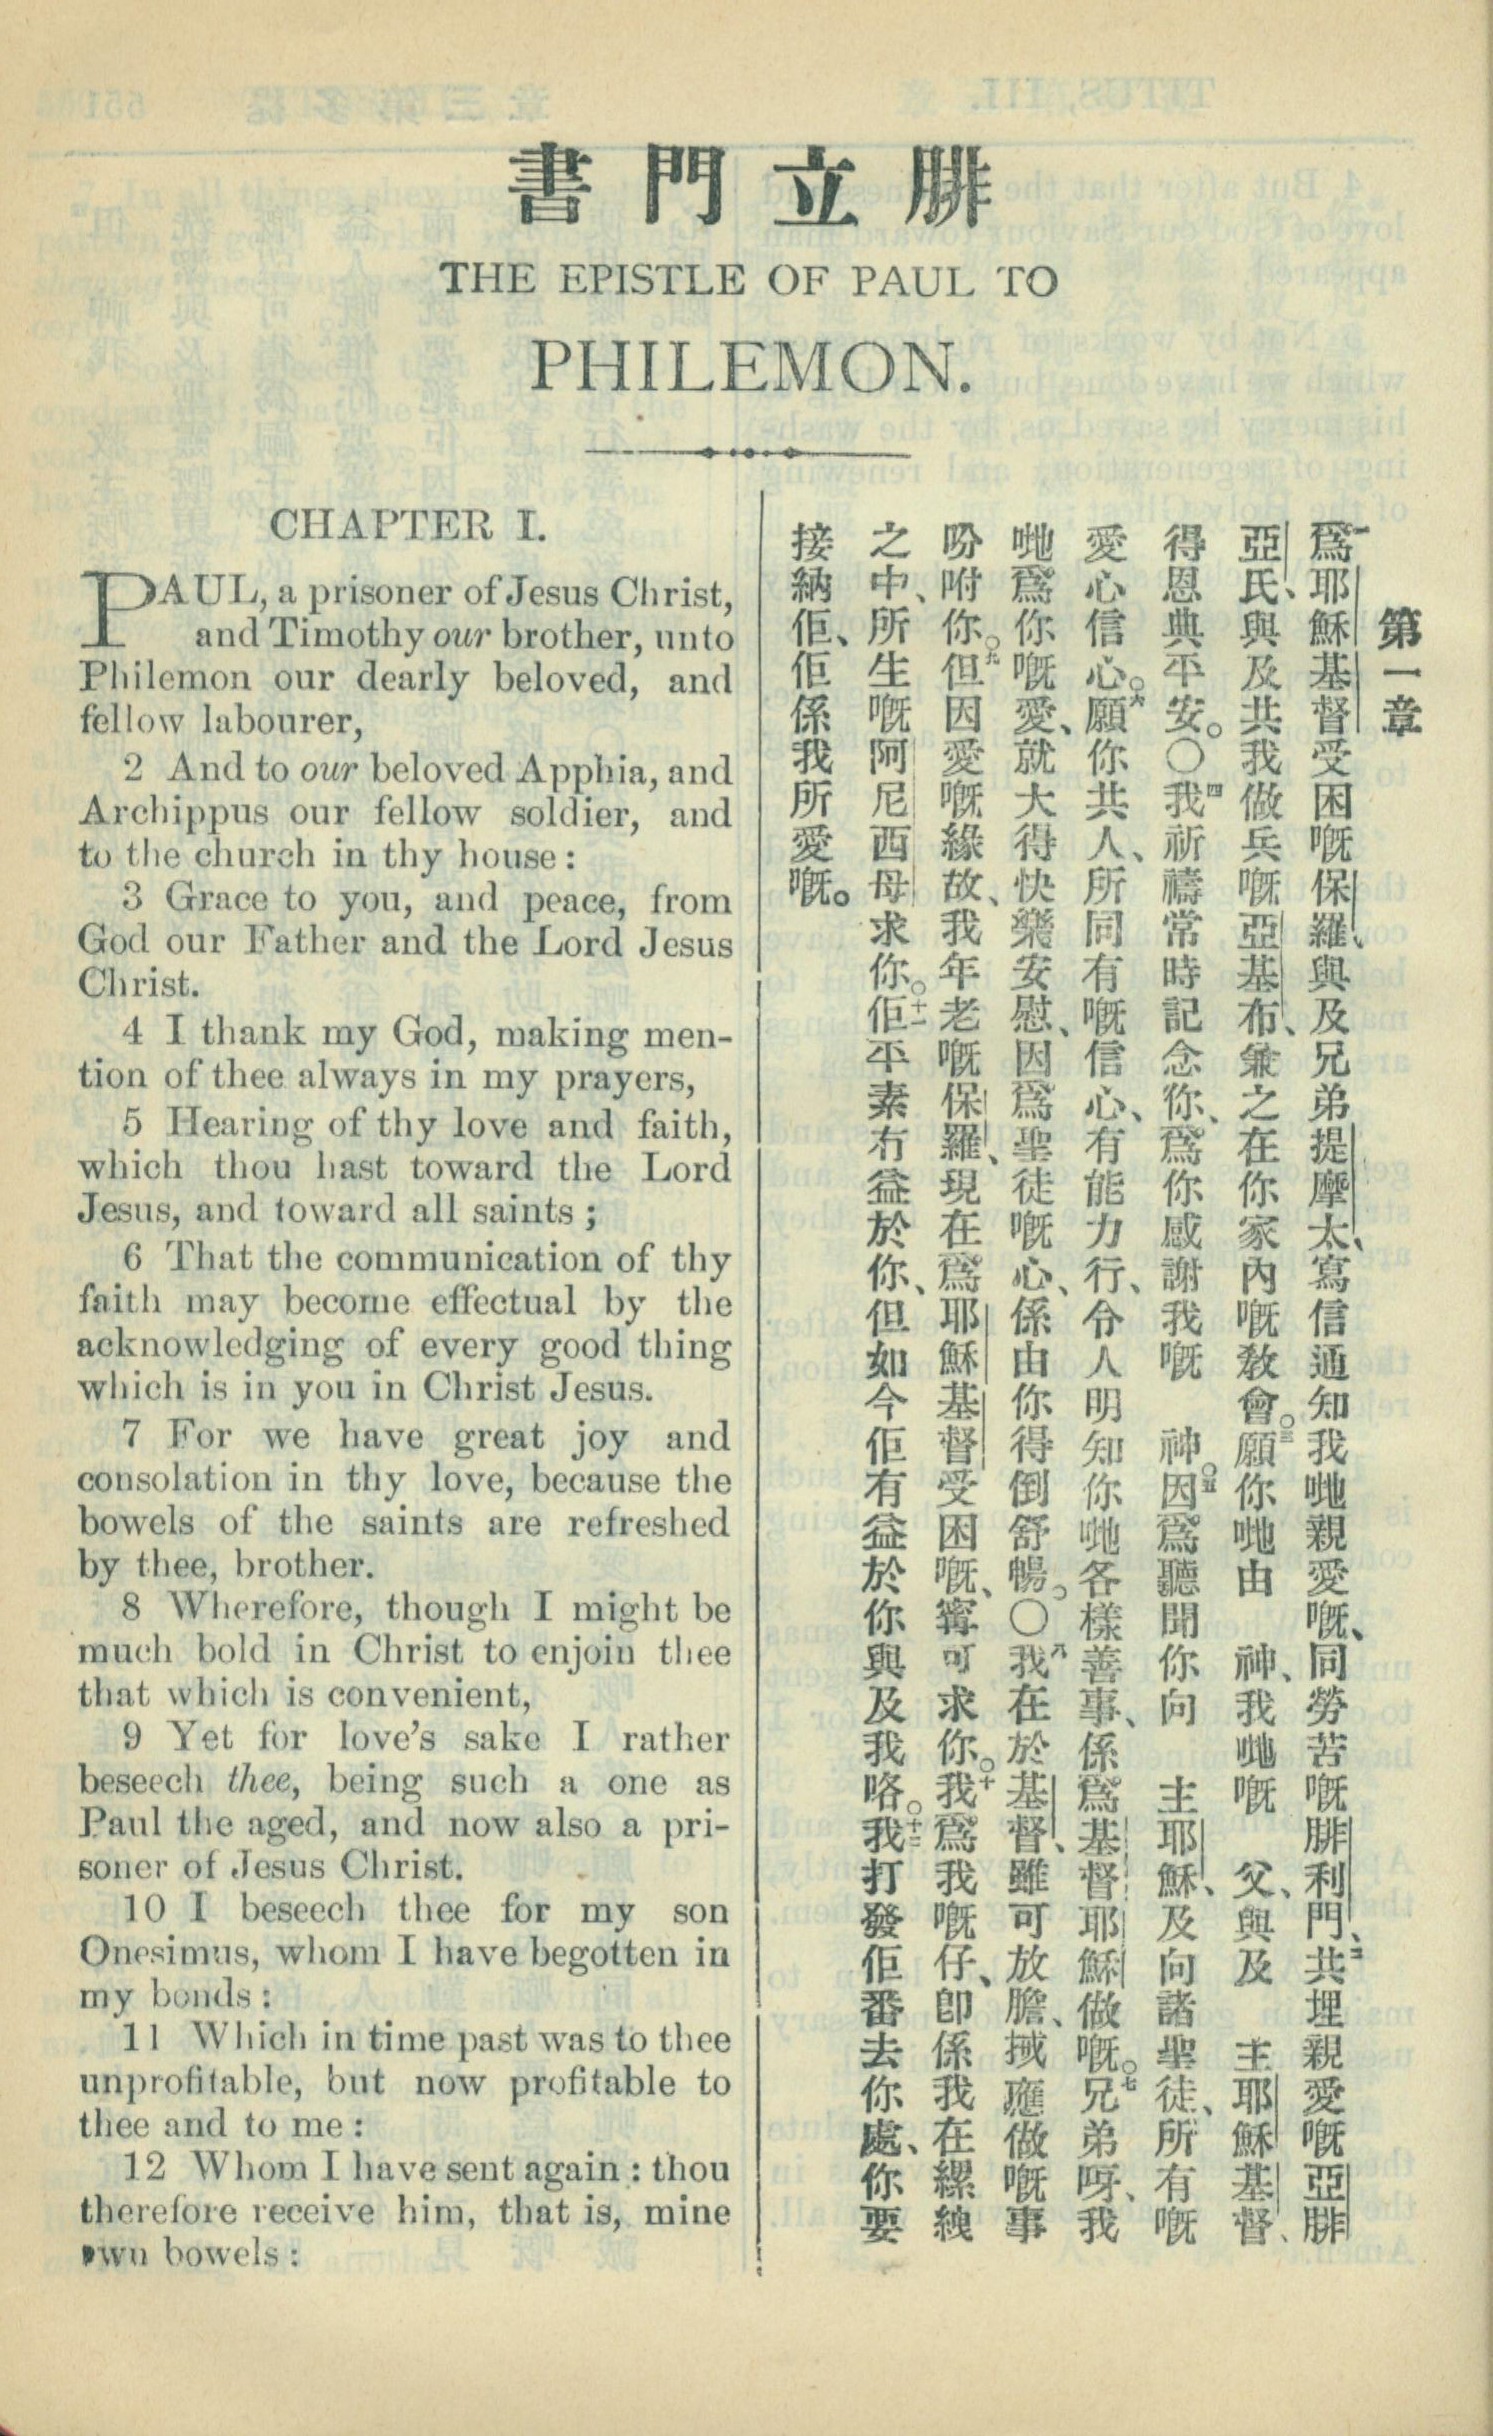 腓立門書
THE EPISTLE OF PAUL TO
PHILEMON.
CHAPTER I.
PAUL, a prisoner of Jesus Christ,
and Timothy our brother, unto
Philemon our dearly beloved, and
fellow labourer,
2 And to our beloved Apphia, and
Archippus our fellow soldier, and
to the church in thy house:
3 Grace to you, and peace, from
God our Father and the Lord Jesus
Christ.
4 I thank my God, making men-
tion of thee always in my prayers,
5 Hearing of thy love and faith,
which thou hast toward the Lord
Jesus, and toward all saints;
6 That the communication of thy
faith may become effectual by the
acknowledging of every good thing
which is in you in Christ Jesus.
7 For we have great joy and
consolation in thy love, because the
bowels of the saints are refreshed
by thee, brother.
8 Wherefore, though I might be
much bold in Christ to enjoin thee
that which is convenient,
9 Yet for love's sake I rather
beseech thee, being such a one as
Paul the aged, and now also a pri-
soner of Jesus Christ.
10 I beseech thee for my son
Onesimus, whom I have begotten in
my bonds:
11 Which in time past was to thee
unprofitable, but now profitable to
thee and to me:
12 Whom I have sent again: thou
therefore receive him, that is, mine
own bowels:
第一章
一爲耶穌基督受困嘅保羅、與及兄弟提摩太、寫信通知我哋親愛嘅、同勞苦嘅腓利門、二共埋親愛嘅亞腓
亞氏、與及共我做兵嘅亞基布、兼之在你家內嘅敎會。三願你哋由 神、我哋嘅 父、與及 主耶穌基督、
得恩典平安。〇四我祈禱常時記念你、爲你感謝我嘅 神。五因爲聽聞你向 主耶穌、及向諸聖徒、所有嘅
愛心信心。六願你共人、所同有嘅信心、有能力行、令人明知你哋各樣善事、係爲基督耶穌做嘅。七兄弟呀、我
哋爲你嘅愛、就大得快樂安慰、因爲聖徒嘅心、係由你得倒舒暢。〇八我在於基督、雖可放膽、揻應做嘅事
吩咐你。九但因愛嘅緣故、我年老嘅保羅、現在爲耶穌基督受困嘅、寧可求你。十我爲我嘅仔、卽係我在縲絏
之中、所生嘅阿尼西母求你。十一佢平素冇益於你、但如今佢有益於你與及我咯。十二我打發佢番去你處、你要
接納佢、佢係我所愛嘅。